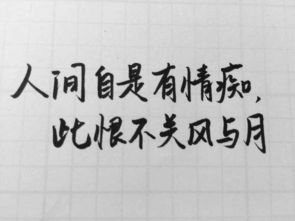 人间自是有情痴，
此恨不关风与月